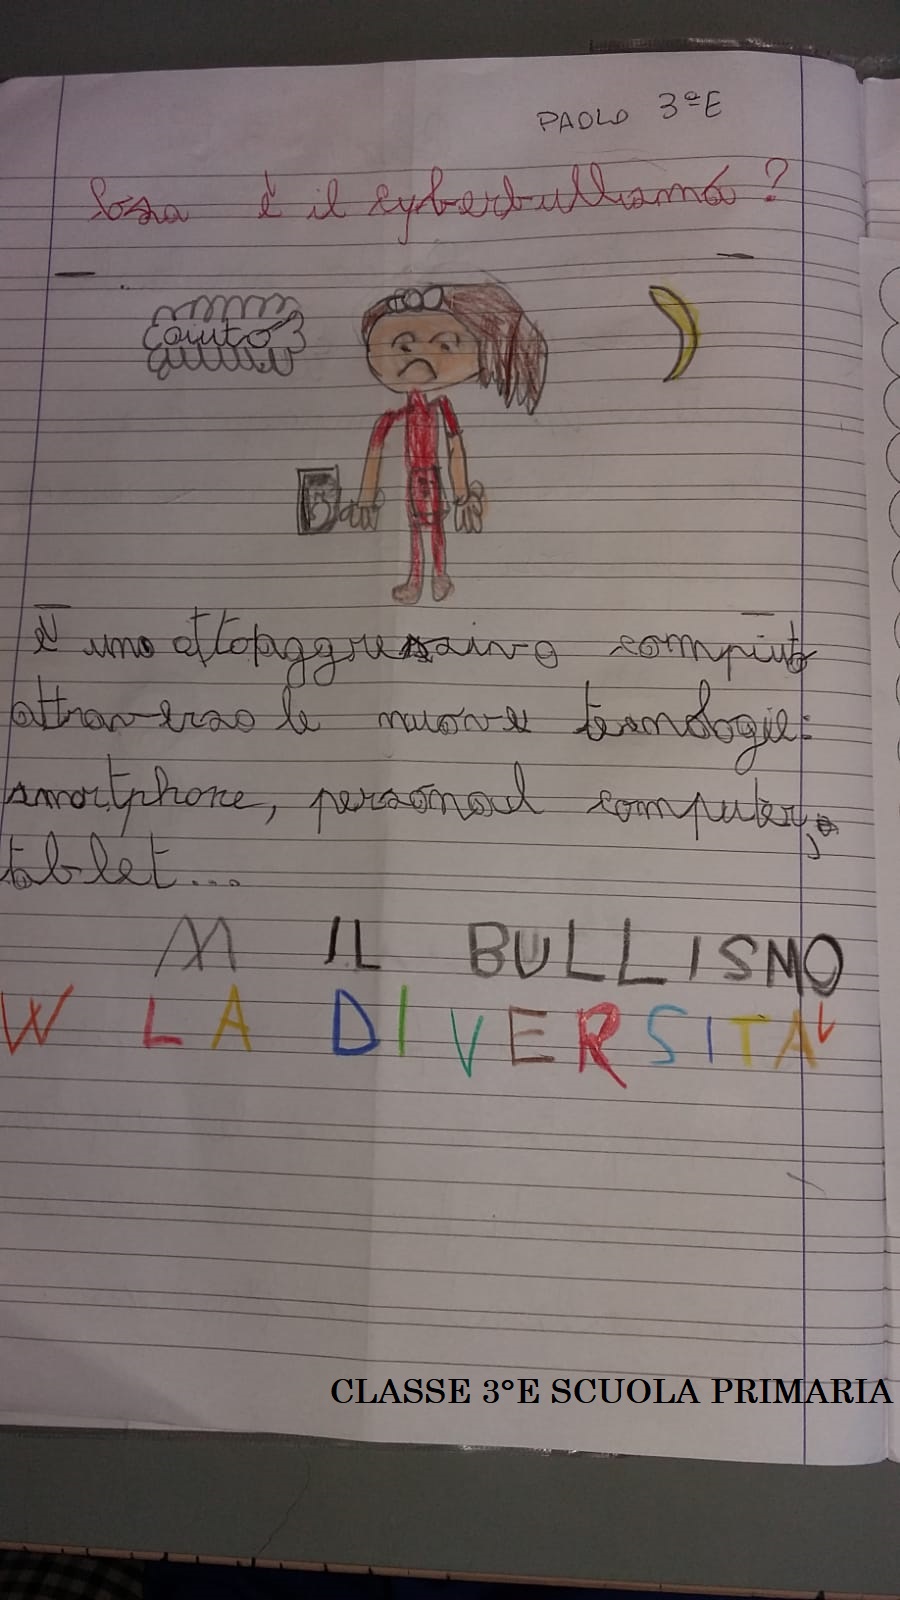 PAOLO 3ªE
Cosa è il cyberbullismo?
aiuto
È uno atto aggressivo compiuto
attraverso le nuove tecnologie:
smartphone, personal computer,
tablet...
M IL BULLISMO
W LA DIVERSITÀ
CLASSE 3°E SCUOLA PRIMARIA